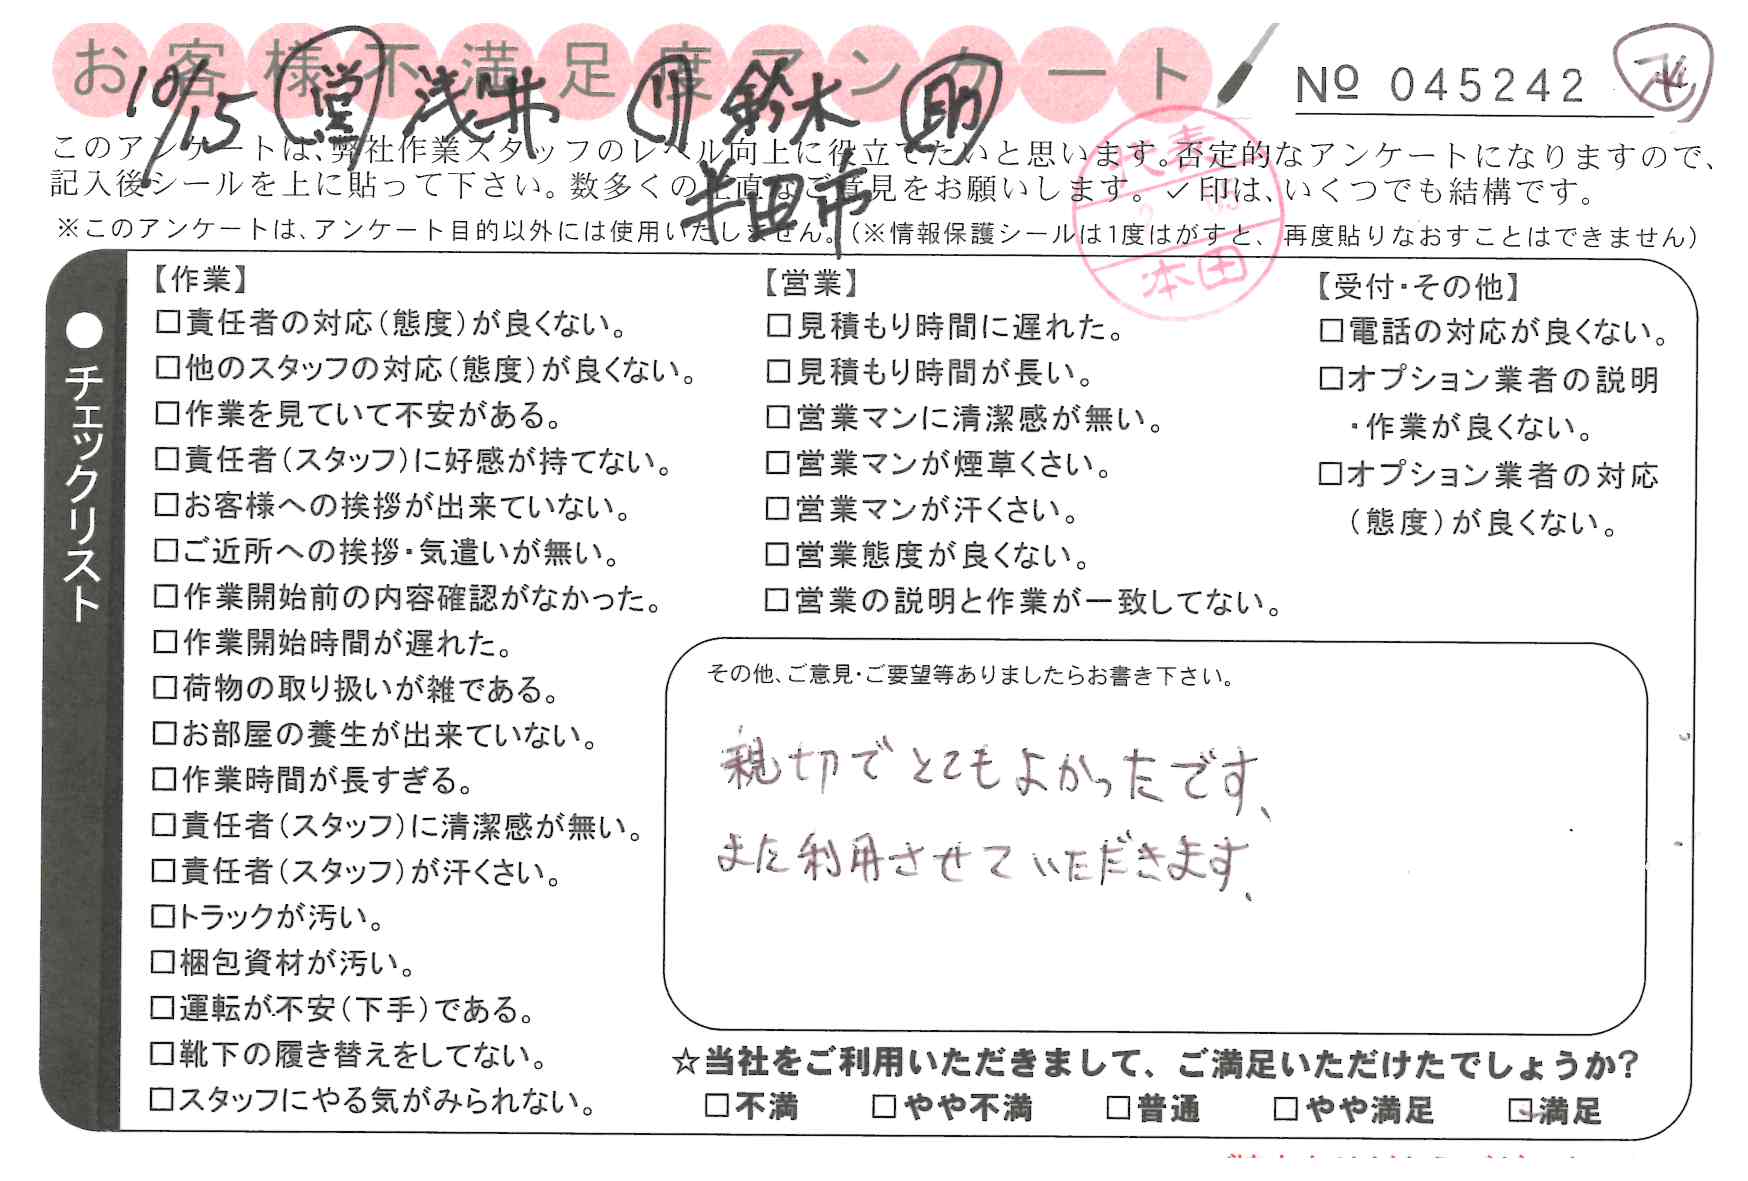 お客様不満足度アンケート
№ 045242
10/15 営 浅井 鈴木 助
半田市
このアンケートは、弊社作業スタッフのレベル向上に役立てたいと思います。否定的なアンケートになりますので、
記入後シールを上に貼って下さい。数多くの正直なご意見をお願いします。✓印は、いくつでも結構です。
※このアンケートは、アンケート目的以外には使用いたしません。(※情報保護シールは1度はがすと、再度貼りなおすことはできません)
代表
本田
●チェックリスト
【作業】
□責任者の対応(態度)が良くない。
□他のスタッフの対応(態度)が良くない。
□作業を見ていて不安がある。
□責任者(スタッフ)に好感が持てない。
□お客様への挨拶が出来ていない。
□ご近所への挨拶・気遣いが無い。
□作業開始前の内容確認がなかった。
□作業開始時間が遅れた。
□荷物の取り扱いが雑である。
□お部屋の養生が出来ていない。
□作業時間が長すぎる。
□責任者(スタッフ)に清潔感が無い。
□責任者(スタッフ)が汗くさい。
□トラックが汚い。
□梱包資材が汚い。
□運転が不安(下手)である。
□靴下の履き替えをしてない。
□スタッフにやる気がみられない。
【営業】
□見積もり時間に遅れた。
□見積もり時間が長い。
□営業マンに清潔感が無い。
□営業マンが煙草くさい。
□営業マンが汗くさい。
□営業態度が良くない。
□営業の説明と作業が一致してない。
【受付・その他】
□電話の対応が良くない。
□オプション業者の説明
・作業が良くない。
□オプション業者の対応
(態度)が良くない。
その他、ご意見・ご要望等ありましたらお書き下さい。
親切でとてもよかったです、
また利用させていただきます、
☆当社をご利用いただきまして、ご満足いただけたでしょうか?
□不満 □やや不満 □普通 □やや満足 ☑満足